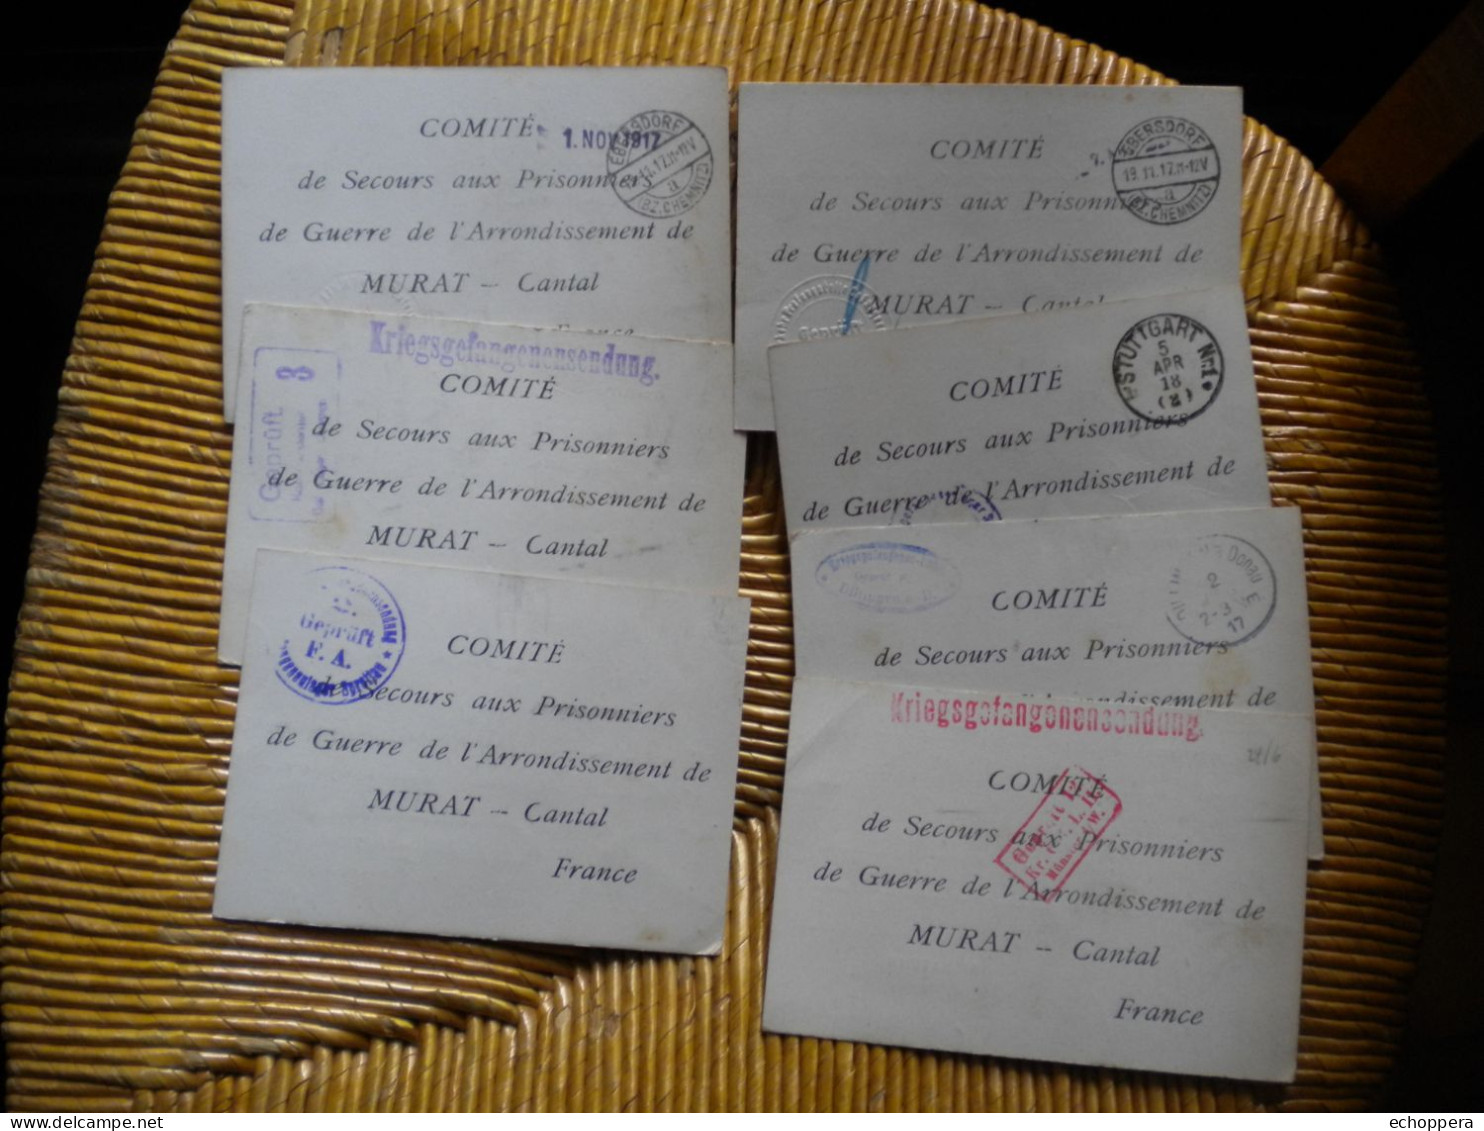 COMITÉ
1. NOV 1917
EBERSDORF
(BZ. CHEMNITZ)
a
de Secours aux Prisonniers
de Guerre de l'Arrondissement de
MURAT — Cantal
France
COMITÉ
EBERSDORF
19.11.17.11-12V
a
(BZ. CHEMNITZ)
de Secours aux Prisonniers
de Guerre de l'Arrondissement de
MURAT — Cantal
Geprüft
Kriegsgefangenensendung.
Geprüft
3
COMITÉ
de Secours aux Prisonniers
de Guerre de l'Arrondissement de
MURAT — Cantal
STUTTGART Nr.1
5
APR
18
COMITÉ
de Secours aux Prisonniers
de Guerre de l'Arrondissement de
Geprüft
F. A.
COMITÉ
de Secours aux Prisonniers
de Guerre de l'Arrondissement de
MURAT — Cantal
France
Donau
17
COMITÉ
de Secours aux Prisonniers
Arrondissement de
Kriegsgefangenensendung.
COMITÉ
de Secours aux Prisonniers
de Guerre de l'Arrondissement de
MURAT -- Cantal
France
echoppera